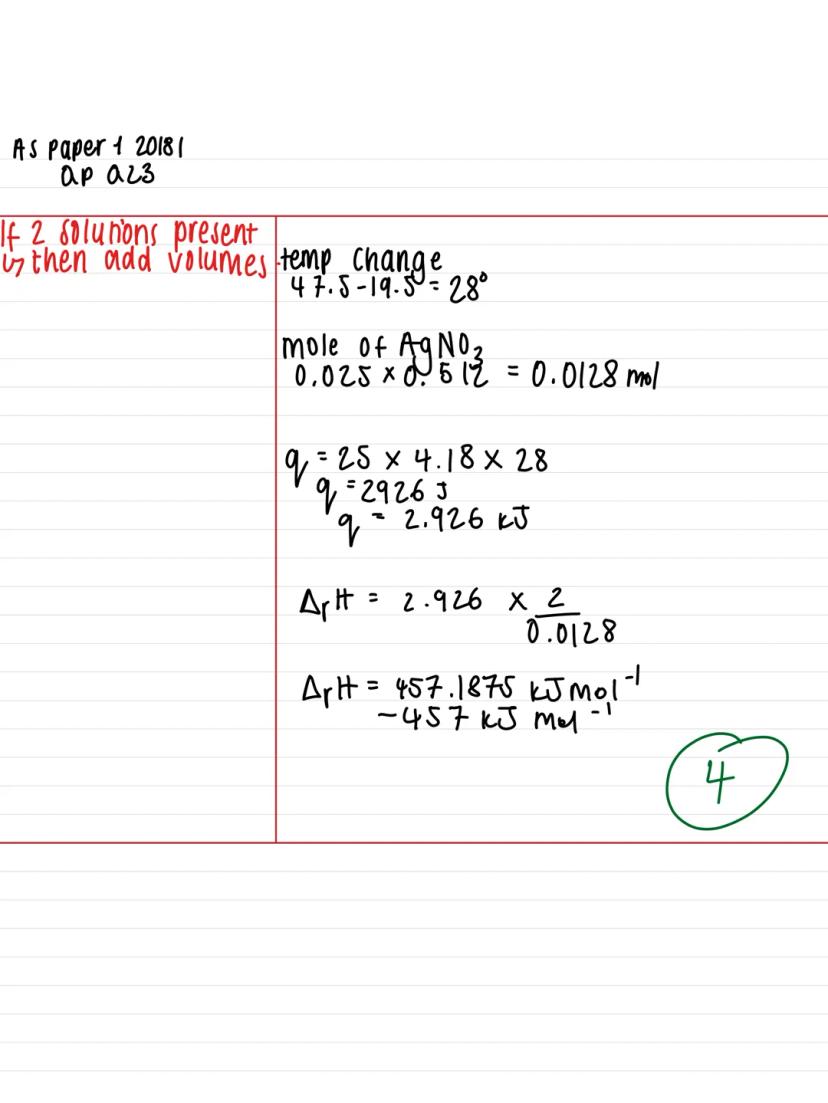 As paper 1 20181
ap a23
If 2 solutions present
↳ then add volumes
temp change
47.5-19.5 = 28°
mole of AgNO₃
0.025 × 0.512 = 0.0128 mol
q = 25 × 4.18 × 28
q = 2926 J
q = 2.926 kJ
ΔrH = 2.926 × 2
0.0128
ΔrH = 457.1875 kJ mol⁻¹
-457 kJ mol⁻¹
4